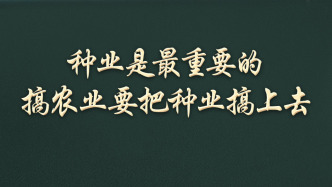 种业是最重要的
搞农业要把种业搞上去